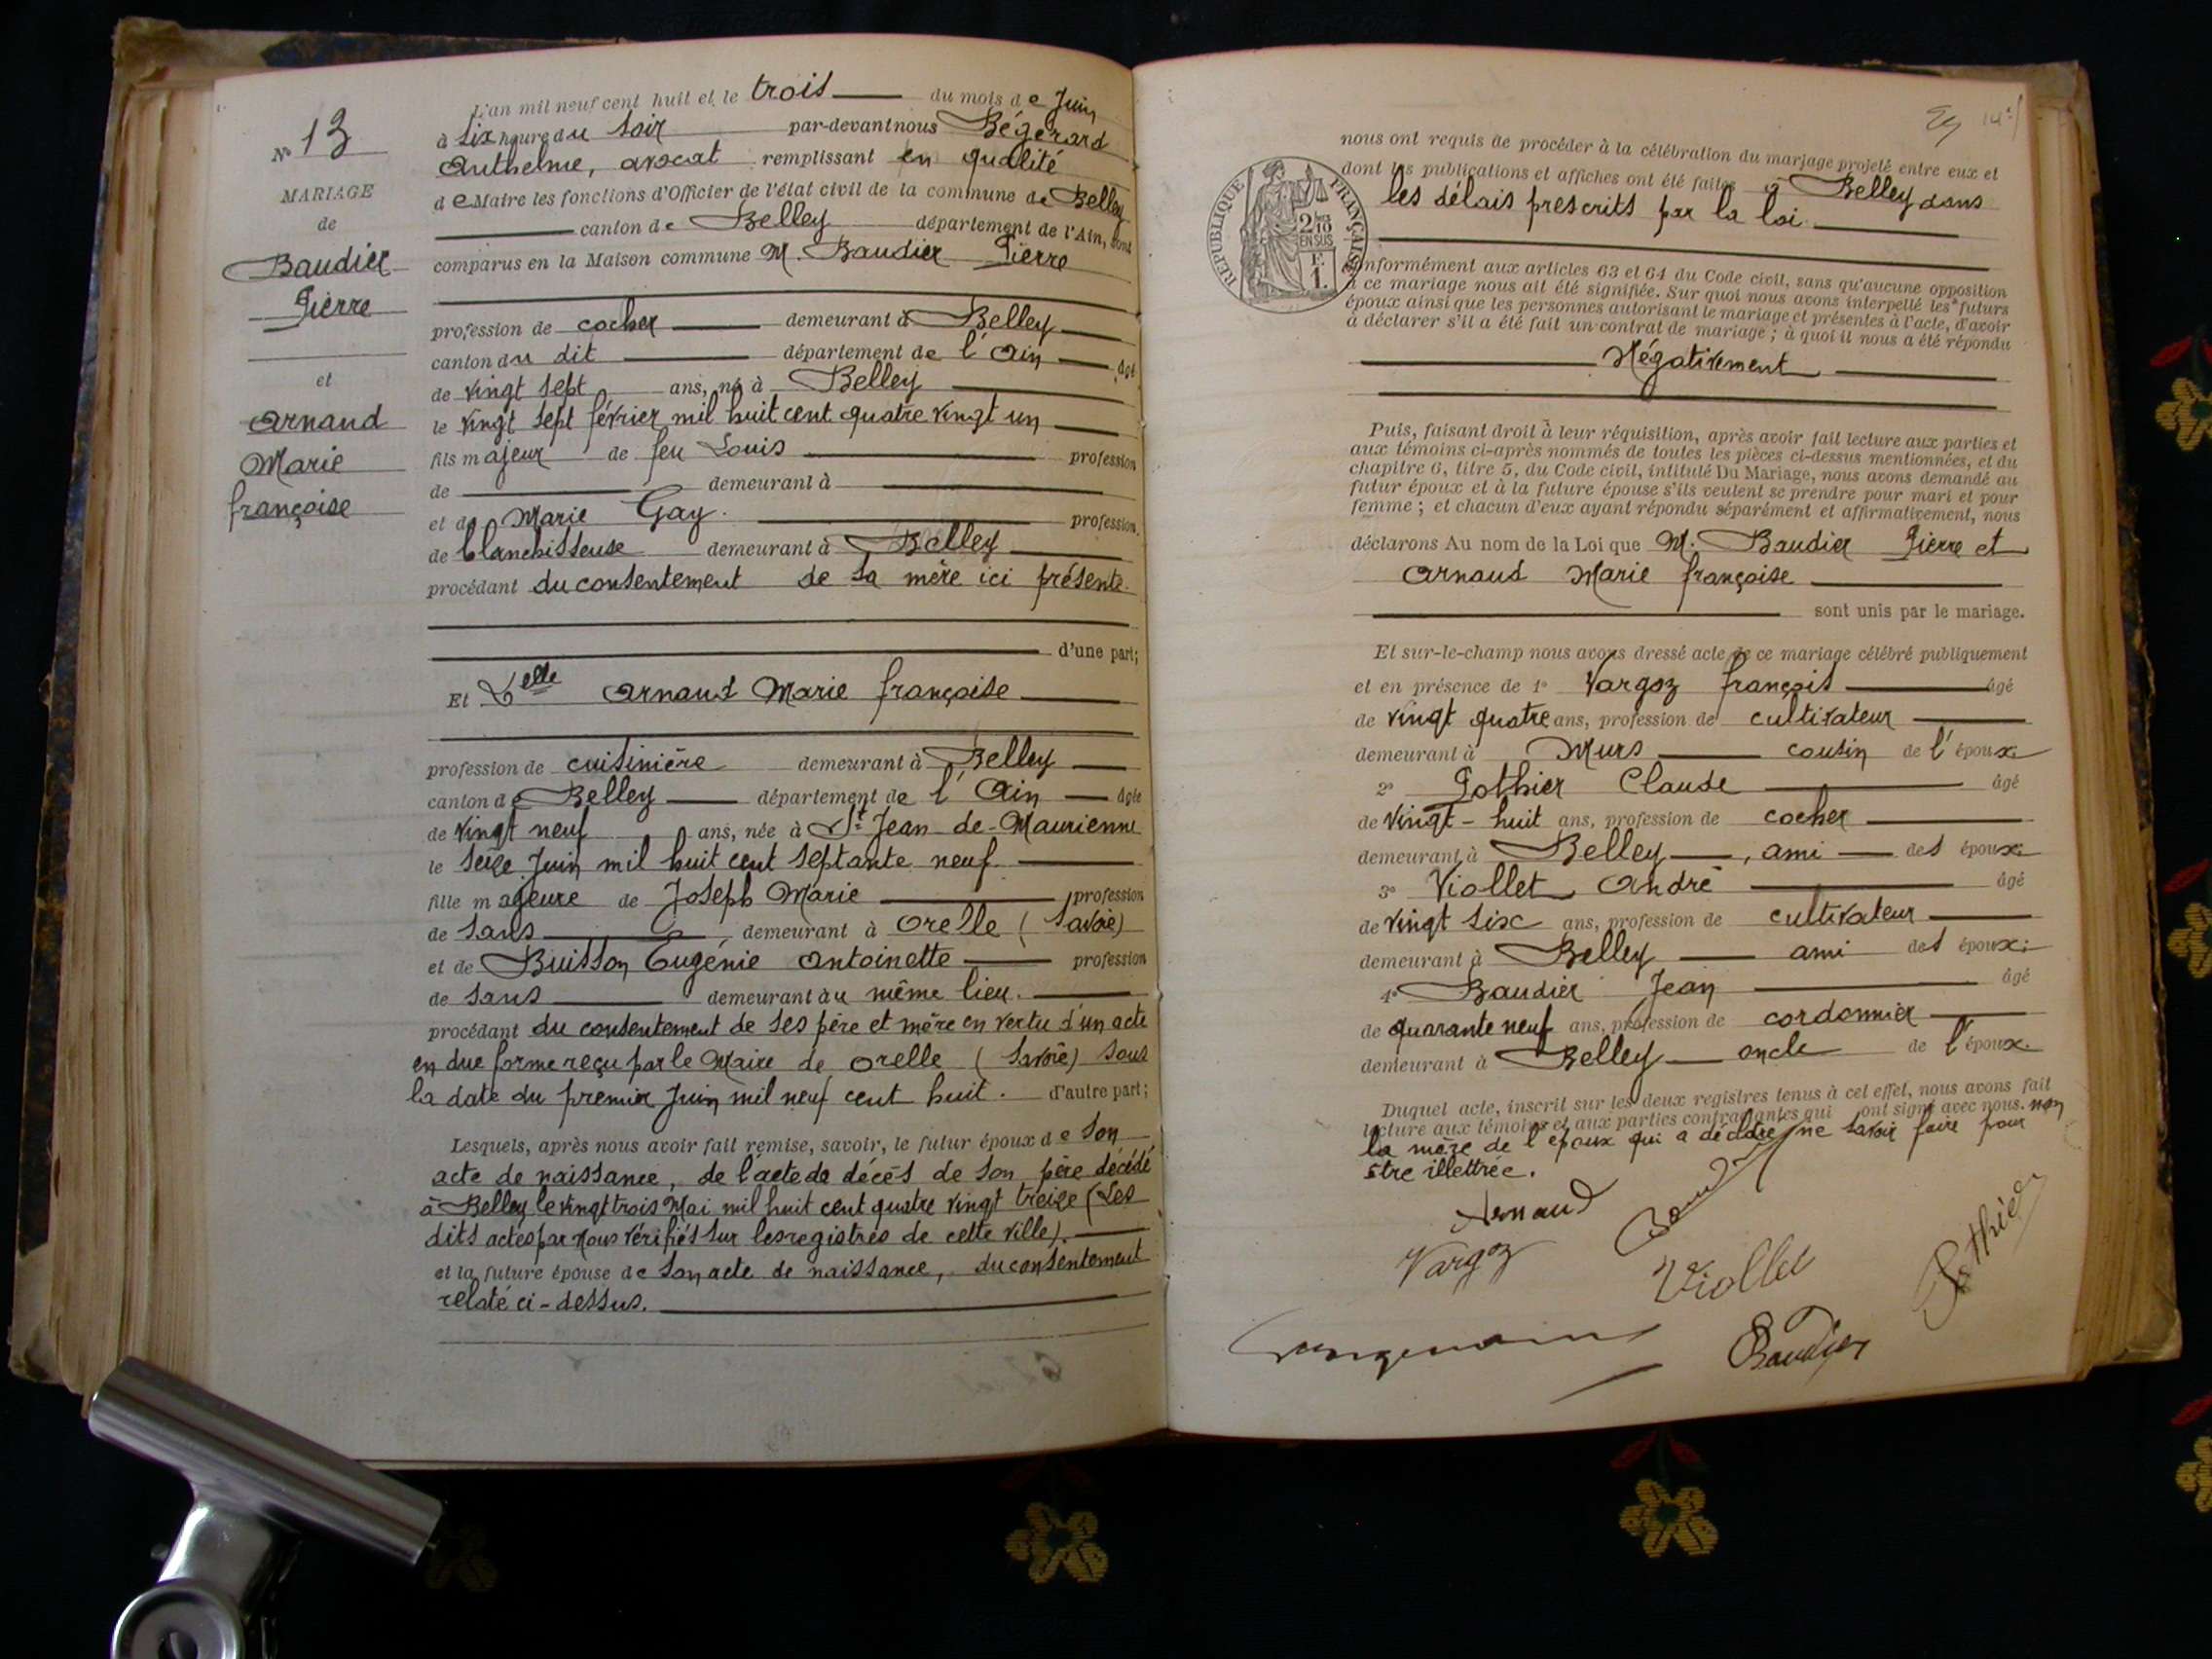 N° 13
MARIAGE
de
Baudier
Pierre
et
Arnaud
Marie
françoise
L'an mil neuf cent huit et le trois du mois de Juin
à six heure du soir par-devant nous Bégérard
Anthelme, avocat remplissant en qualité
de Maire les fonctions d'Officier de l'état civil de la commune de Belley
canton de Belley département de l'Ain, sont
comparus en la Maison commune M. Baudier Pierre
profession de cocher demeurant à Belley
canton du dit département de l'Ain âgé
de vingt sept ans, né à Belley
le vingt sept février mil huit cent quatre vingt un
fils majeur de feu Louis profession
de demeurant à
et de Marie Gay. profession
de blanchisseuse demeurant à Belley
procédant du consentement de sa mère ici présente.
d'une part;
Et Delle Arnaud Marie françoise
profession de cuisinière demeurant à Belley
canton de Belley département de l'Ain âgée
de vingt neuf ans, née à St Jean-de-Maurienne
le seize Juin mil huit cent septante neuf.
fille majeure de Joseph Marie profession
de sans demeurant à Orelle (Savoie)
et de Buisson Eugénie Antoinette profession
de sans demeurant au même lieu.
procédant du consentement de ses père et mère en vertu d'un acte
en due forme reçu par le Maire de Orelle (Savoie) sous
la date du premier Juin mil neuf cent huit. d'autre part;
Lesquels, après nous avoir fait remise, savoir, le futur époux de son
acte de naissance, de l'acte de décès de son père décédé
à Belley le vingt trois Mai mil huit cent quatre vingt treize (Les
dits actes par Nous vérifiés sur les registres de cette ville).
et la future épouse de son acte de naissance, du consentement
relaté ci-dessus.
nous ont requis de procéder à la célébration du mariage projeté entre eux et
dont les publications et affiches ont été faites à Belley dans
les délais prescrits par la loi.
REPUBLIQUE FRANÇAISE
2/10 EN SUS
F. 1.
conformément aux articles 63 et 64 du Code civil, sans qu'aucune opposition
à ce mariage nous ait été signifiée. Sur quoi nous avons interpellé les futurs
époux ainsi que les personnes autorisant le mariage et présentes à l'acte, d'avoir
à déclarer s'il a été fait un contrat de mariage; à quoi il nous a été répondu
Négativement
Puis, faisant droit à leur réquisition, après avoir fait lecture aux parties et
aux témoins ci-après nommés de toutes les pièces ci-dessus mentionnées, et du
chapitre 6, titre 5, du Code civil, intitulé Du Mariage, nous avons demandé au
futur époux et à la future épouse s'ils veulent se prendre pour mari et pour
femme; et chacun d'eux ayant répondu séparément et affirmativement, nous
déclarons Au nom de la Loi que M. Baudier Pierre et
Arnaud Marie françoise
sont unis par le mariage.
Et sur-le-champ nous avons dressé acte de ce mariage célébré publiquement
et en présence de 1° Vargoz françois âgé
de vingt quatre ans, profession de cultivateur
demeurant à Murs cousin de l'époux
2° Pothier Claude âgé
de vingt-huit ans, profession de cocher
demeurant à Belley, ami des époux
3° Viollet André âgé
de vingt six ans, profession de cultivateur
demeurant à Belley ami des époux;
4° Baudier Jean âgé
de quarante neuf ans, profession de cordonnier
demeurant à Belley oncle de l'époux.
Duquel acte, inscrit sur les deux registres tenus à cet effet, nous avons fait
lecture aux témoins et aux parties contractantes qui ont signé avec nous. non
la mère de l'époux qui a déclaré ne savoir faire pour
être illettrée.
Arnaud
Vargoz
Viollet
Pothier
Baudier